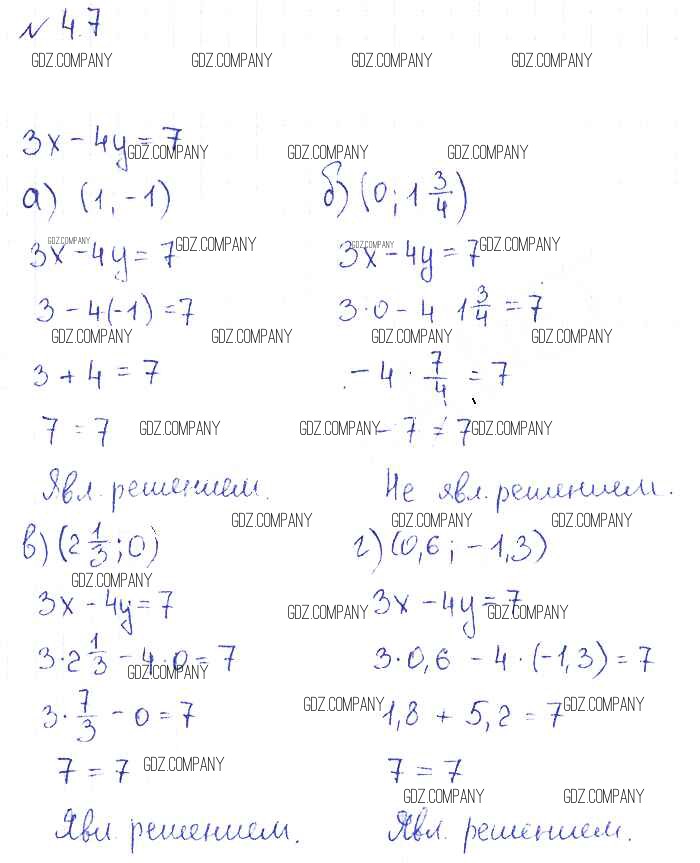 № 4.7
GDZ.COMPANY GDZ.COMPANY GDZ.COMPANY GDZ.COMPANY
3x - 4y = 7
GDZ.COMPANY GDZ.COMPANY GDZ.COMPANY
а) (1, -1) б) (0; 1 3/4)
GDZ.COMPANY GDZ.COMPANY GDZ.COMPANY GDZ.COMPANY
3x - 4y = 7 3x - 4y = 7
3 - 4(-1) = 7 3·0 - 4 1 3/4 = 7
GDZ.COMPANY GDZ.COMPANY GDZ.COMPANY GDZ.COMPANY
3 + 4 = 7 -4 · 7/4 = 7
7 = 7 GDZ.COMPANY GDZ.COMPANY -7 = 7 GDZ.COMPANY
Явл. решением. Не явл. решением.
GDZ.COMPANY GDZ.COMPANY GDZ.COMPANY
в) (2 1/3; 0) г) (0,6; -1,3)
GDZ.COMPANY
3x - 4y = 7 GDZ.COMPANY 3x - 4y = 7 GDZ.COMPANY
3·2 1/3 - 4·0 = 7 3·0,6 - 4·(-1,3) = 7
GDZ.COMPANY
3· 7/3 - 0 = 7 GDZ.COMPANY 1,8 + 5,2 = 7 GDZ.COMPANY
7 = 7 GDZ.COMPANY 7 = 7
GDZ.COMPANY GDZ.COMPANY
Явл. решением. Явл. решением.